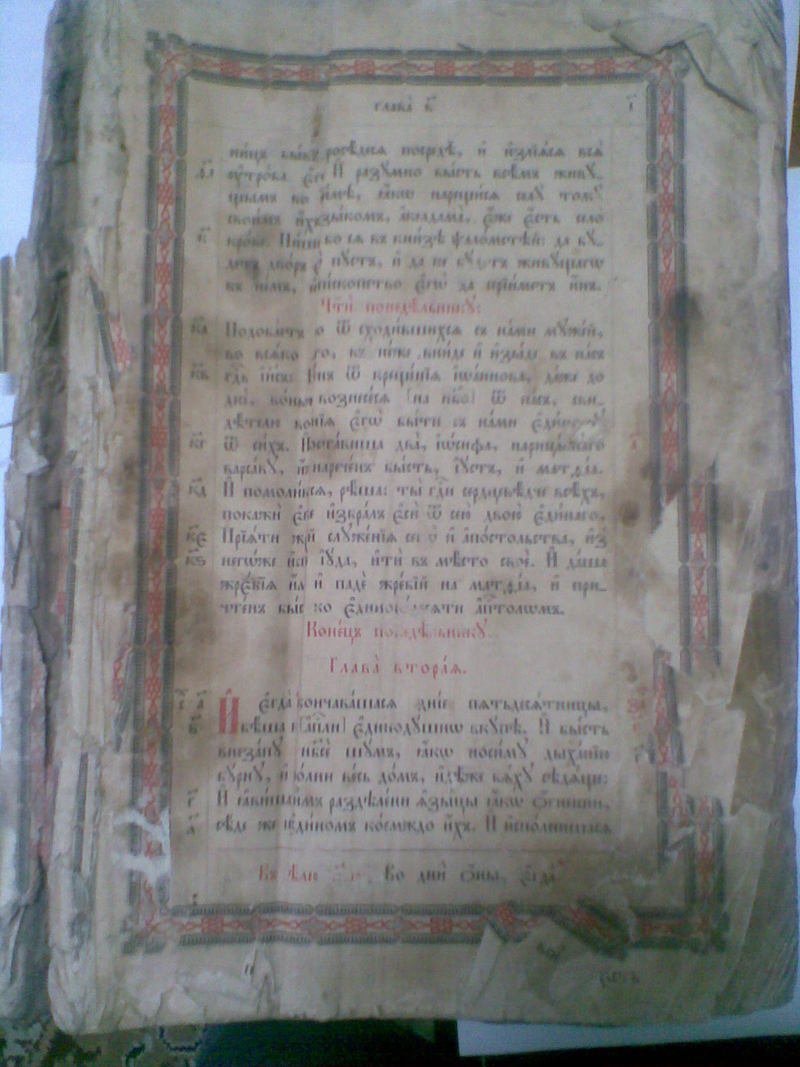 глава̀ в҃
ницъ бы́въ просѣ́деся посредѣ̀, и҆ и҆злїѧ́сѧ всѧ̀
ѹ҆тро́ба є҆гѡ̀ И҆ разѹ́мно бы́сть всѣ́мъ живѹ́
щымъ во і҆и҃мѣ, ꙗ҆́кѡ нарещи́сѧ селѹ̀ томѹ̀
свои́мъ и҆̀хъ ѧ҆зы́комъ, а҆келдама̀, є҆́же є҆́сть село̀
кро́ве. Пи́сано бо сѧ въ кни́зѣ ѱало́мстѣй: да бѹ́
детъ дво́ръ є҆гѡ̀ пѹ́стъ, и҆ да не бѹ́детъ живѹ́щагѡ
въ не́мъ, и҆ є҆пи́скопство є҆гѡ̀ да прїи́метъ и҆́нъ.
Чтѝ понедѣ́льникѹ:
к҃а Подоба́етъ ѹ҆̀бо ѿ сходи́вшихсѧ съ на́ми мѹже́й,
во всѧ́ко лѣ́то, въ не́же вни́де и҆ и҆зы́де въ на́съ
к҃в гдⷭ҇ь і҆и҃съ: Наче́нъ ѿ креще́нїѧ і҆ѡа́ннова, да́же до
днѐ, во́ньже вознесе́сѧ [на нб҃о] ѿ на́съ, сви
дѣ́телю воскресе́нїѧ є҆гѡ̀ бы́ти съ на́ми є҆ди́номѹ
к҃г ѿ си́хъ. И҆ поста́виша два̀, і҆ѡ́сифа, нарица́емаго
варса́вѹ, и҆́же нарече́нъ бы́сть і҆ѹ́стъ, и҆ матѳі́а.
к҃д И҆ помоли́вшесѧ, рѣ́ша: ты̀ гдⷭ҇и сердцевѣ́дче всѣ́хъ,
покажѝ є҆го́же и҆збра́лъ є҆сѝ ѿ сею̀ двою̀ є҆ди́наго,
к҃є Прїѧ́ти жре́бїй слѹже́нїѧ сегѡ̀ и҆ а҆по́стольства, и҆з̾
негѡ́же и҆спадѐ і҆ѹ́да, и҆тѝ въ мѣ́сто своѐ.
к҃ѕ И҆ да́ша
жрє́бїѧ и҆́ма и҆ падѐ жре́бїй на матѳі́а, и҆ при
чте́нъ бы́сть ко є҆диномѹна́десѧти а҆пⷭ҇толѡмъ.
Коне́цъ понедѣ́льникѹ
Глава̀ втора́ѧ.
И҆ є҆гда̀ скончава́шасѧ дні́е пѧтьдесѧ́тницы,
бѣ́ша всѝ [а҆пⷭ҇ли] є҆динодѹ́шнѡ вкѹ́пѣ. И҆ бы́сть
внеза́пѹ съ нб҃сѐ шѹ́мъ, ꙗ҆́кѡ носи́мѹ дыха́нїю
бѹ́рнѹ, и҆ и҆спо́лни ве́сь до́мъ, и҆дѣ́же бѧ́хѹ сѣдѧ́ще:
И҆ ꙗ҆ви́шасѧ и҆̀мъ раздѣле́ни ѧ҆зы́цы ꙗ҆́кѡ ѻ҆́гненни,
сѣ́де же на є҆ди́номъ ко́емждо и҆́хъ. И҆ и҆спо́лнишасѧ
Во днѝ ѻ҆́ны, є҆гда̀